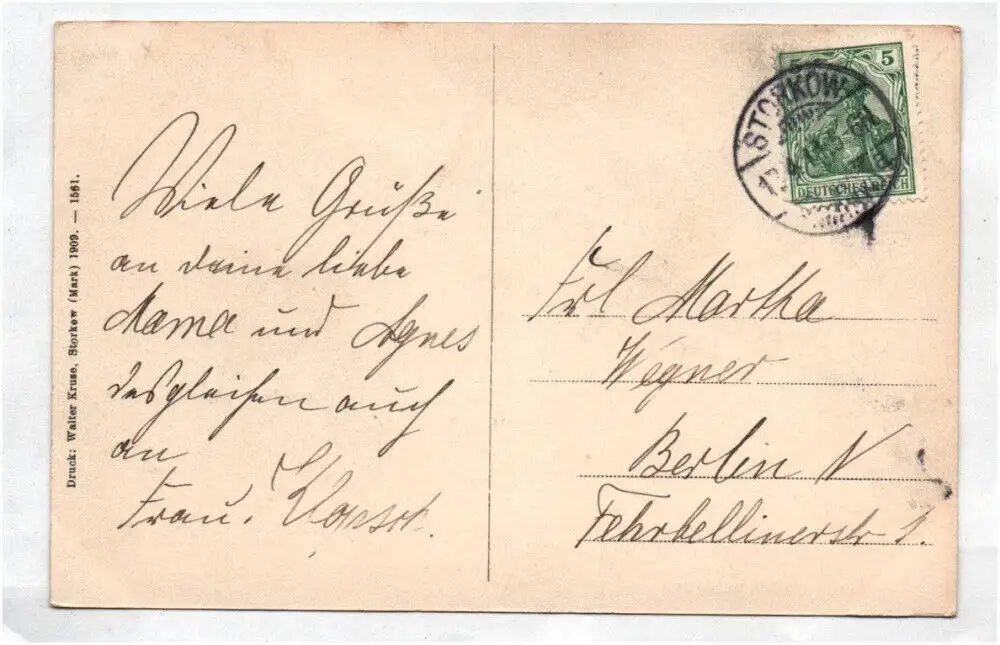 Viele Grüße
an deine liebe
Mama und Agnes
desgleichen auch
an
Frau.
Frl Martha
Wegner
Berlin N
Fehrbellinerstr 1.
STORKOW
5
DEUTSCHES REICH
Druck: Walter Kruse, Storkow (Mark) 1909. — 1561.